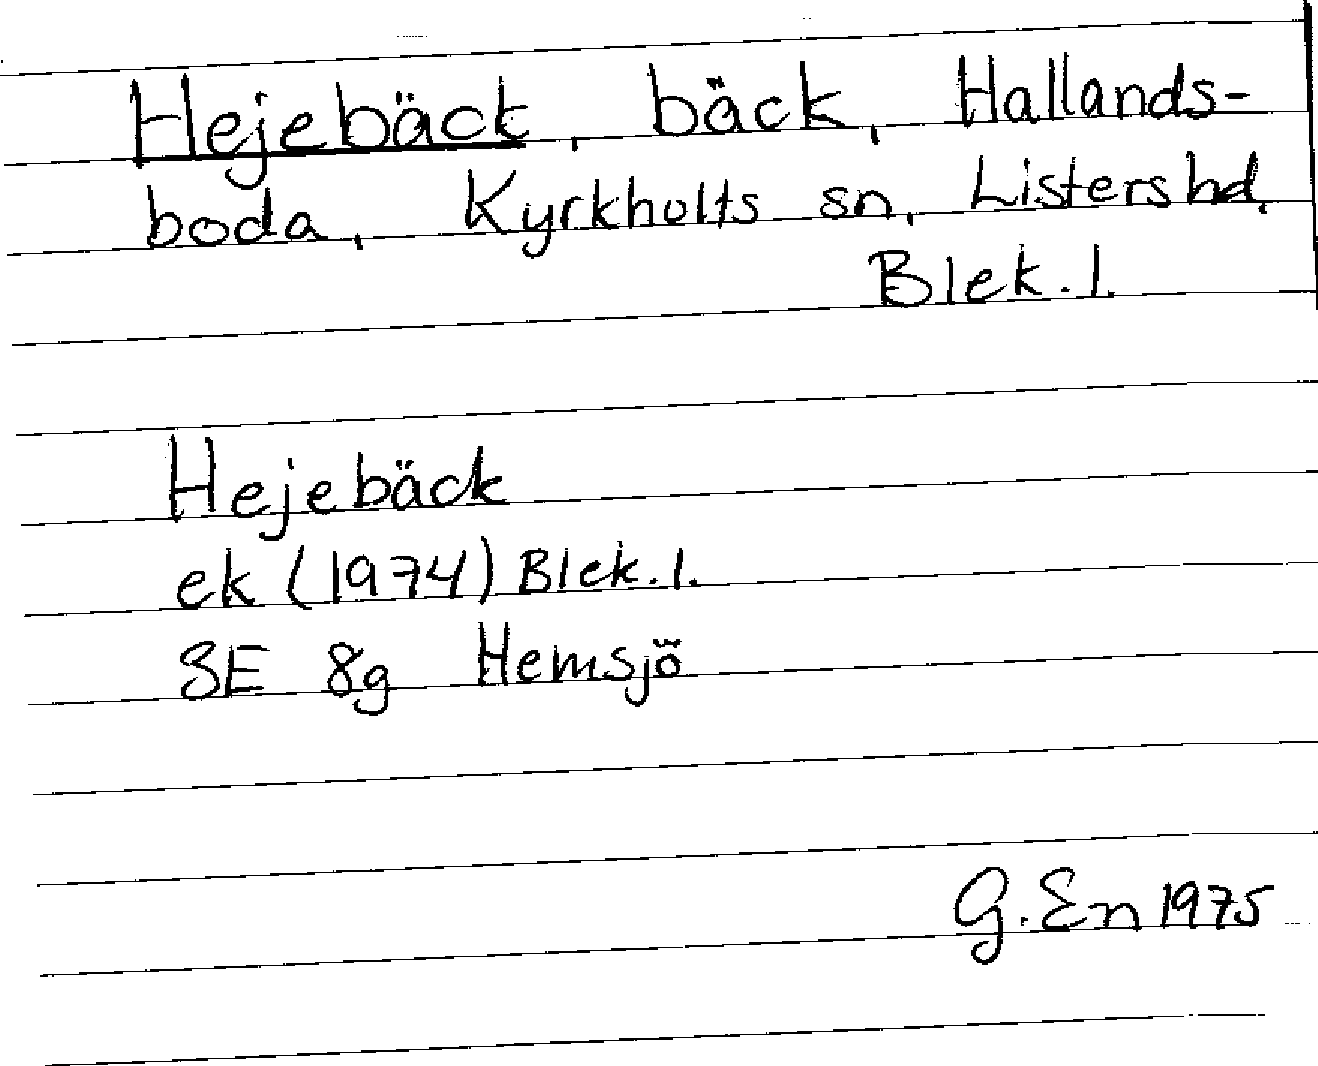 Hejebäck, bäck, Hallands-
boda, Kyrkhults sn, Listers hd.
Blek. l.
Hejebäck
ek (1974) Blek. l.
3E 8g Hemsjö
G. En 1975